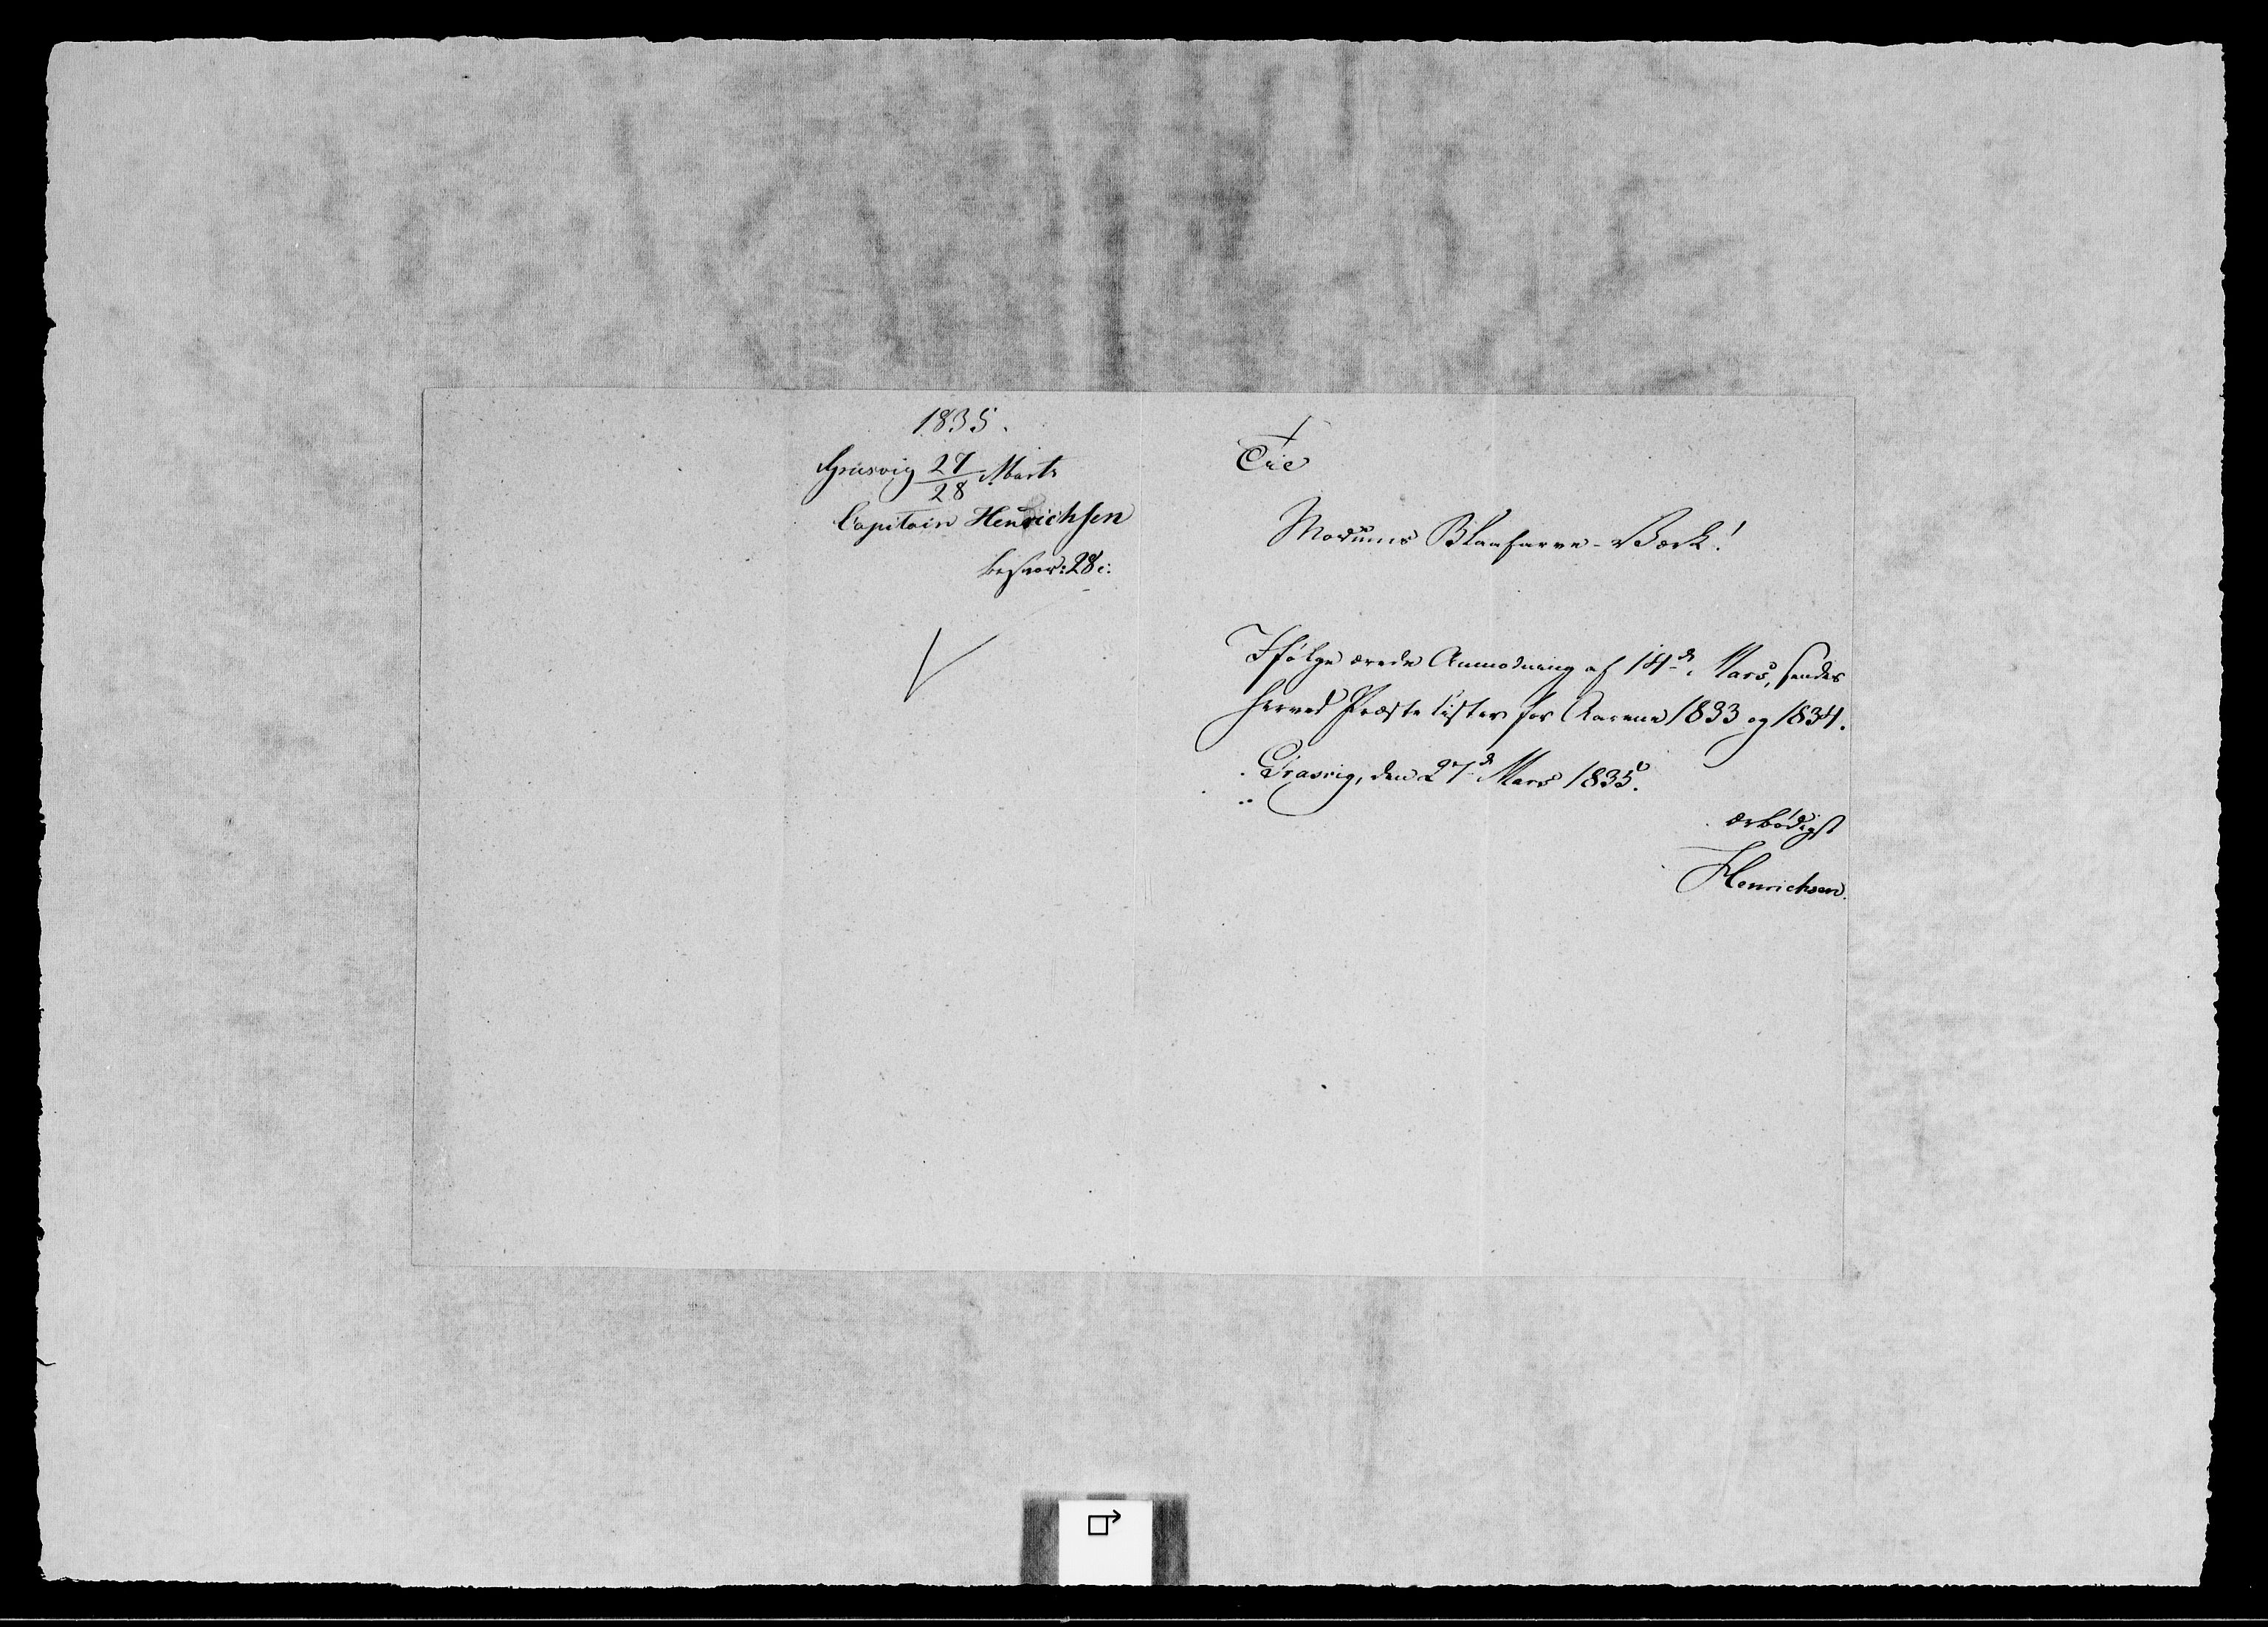 1835.
27/28 Marts
Capitain Henrichsen
besvar: 28 c:
Til
Modums Blaafarve-Værk!
Ifølge ærede Anmodning af 14de Mars, sendes
herved Præste Lister for Aarene 1833 og 1834.
Grasvig, den 27de Mars 1835.
ærbødigst
Henrichsen.